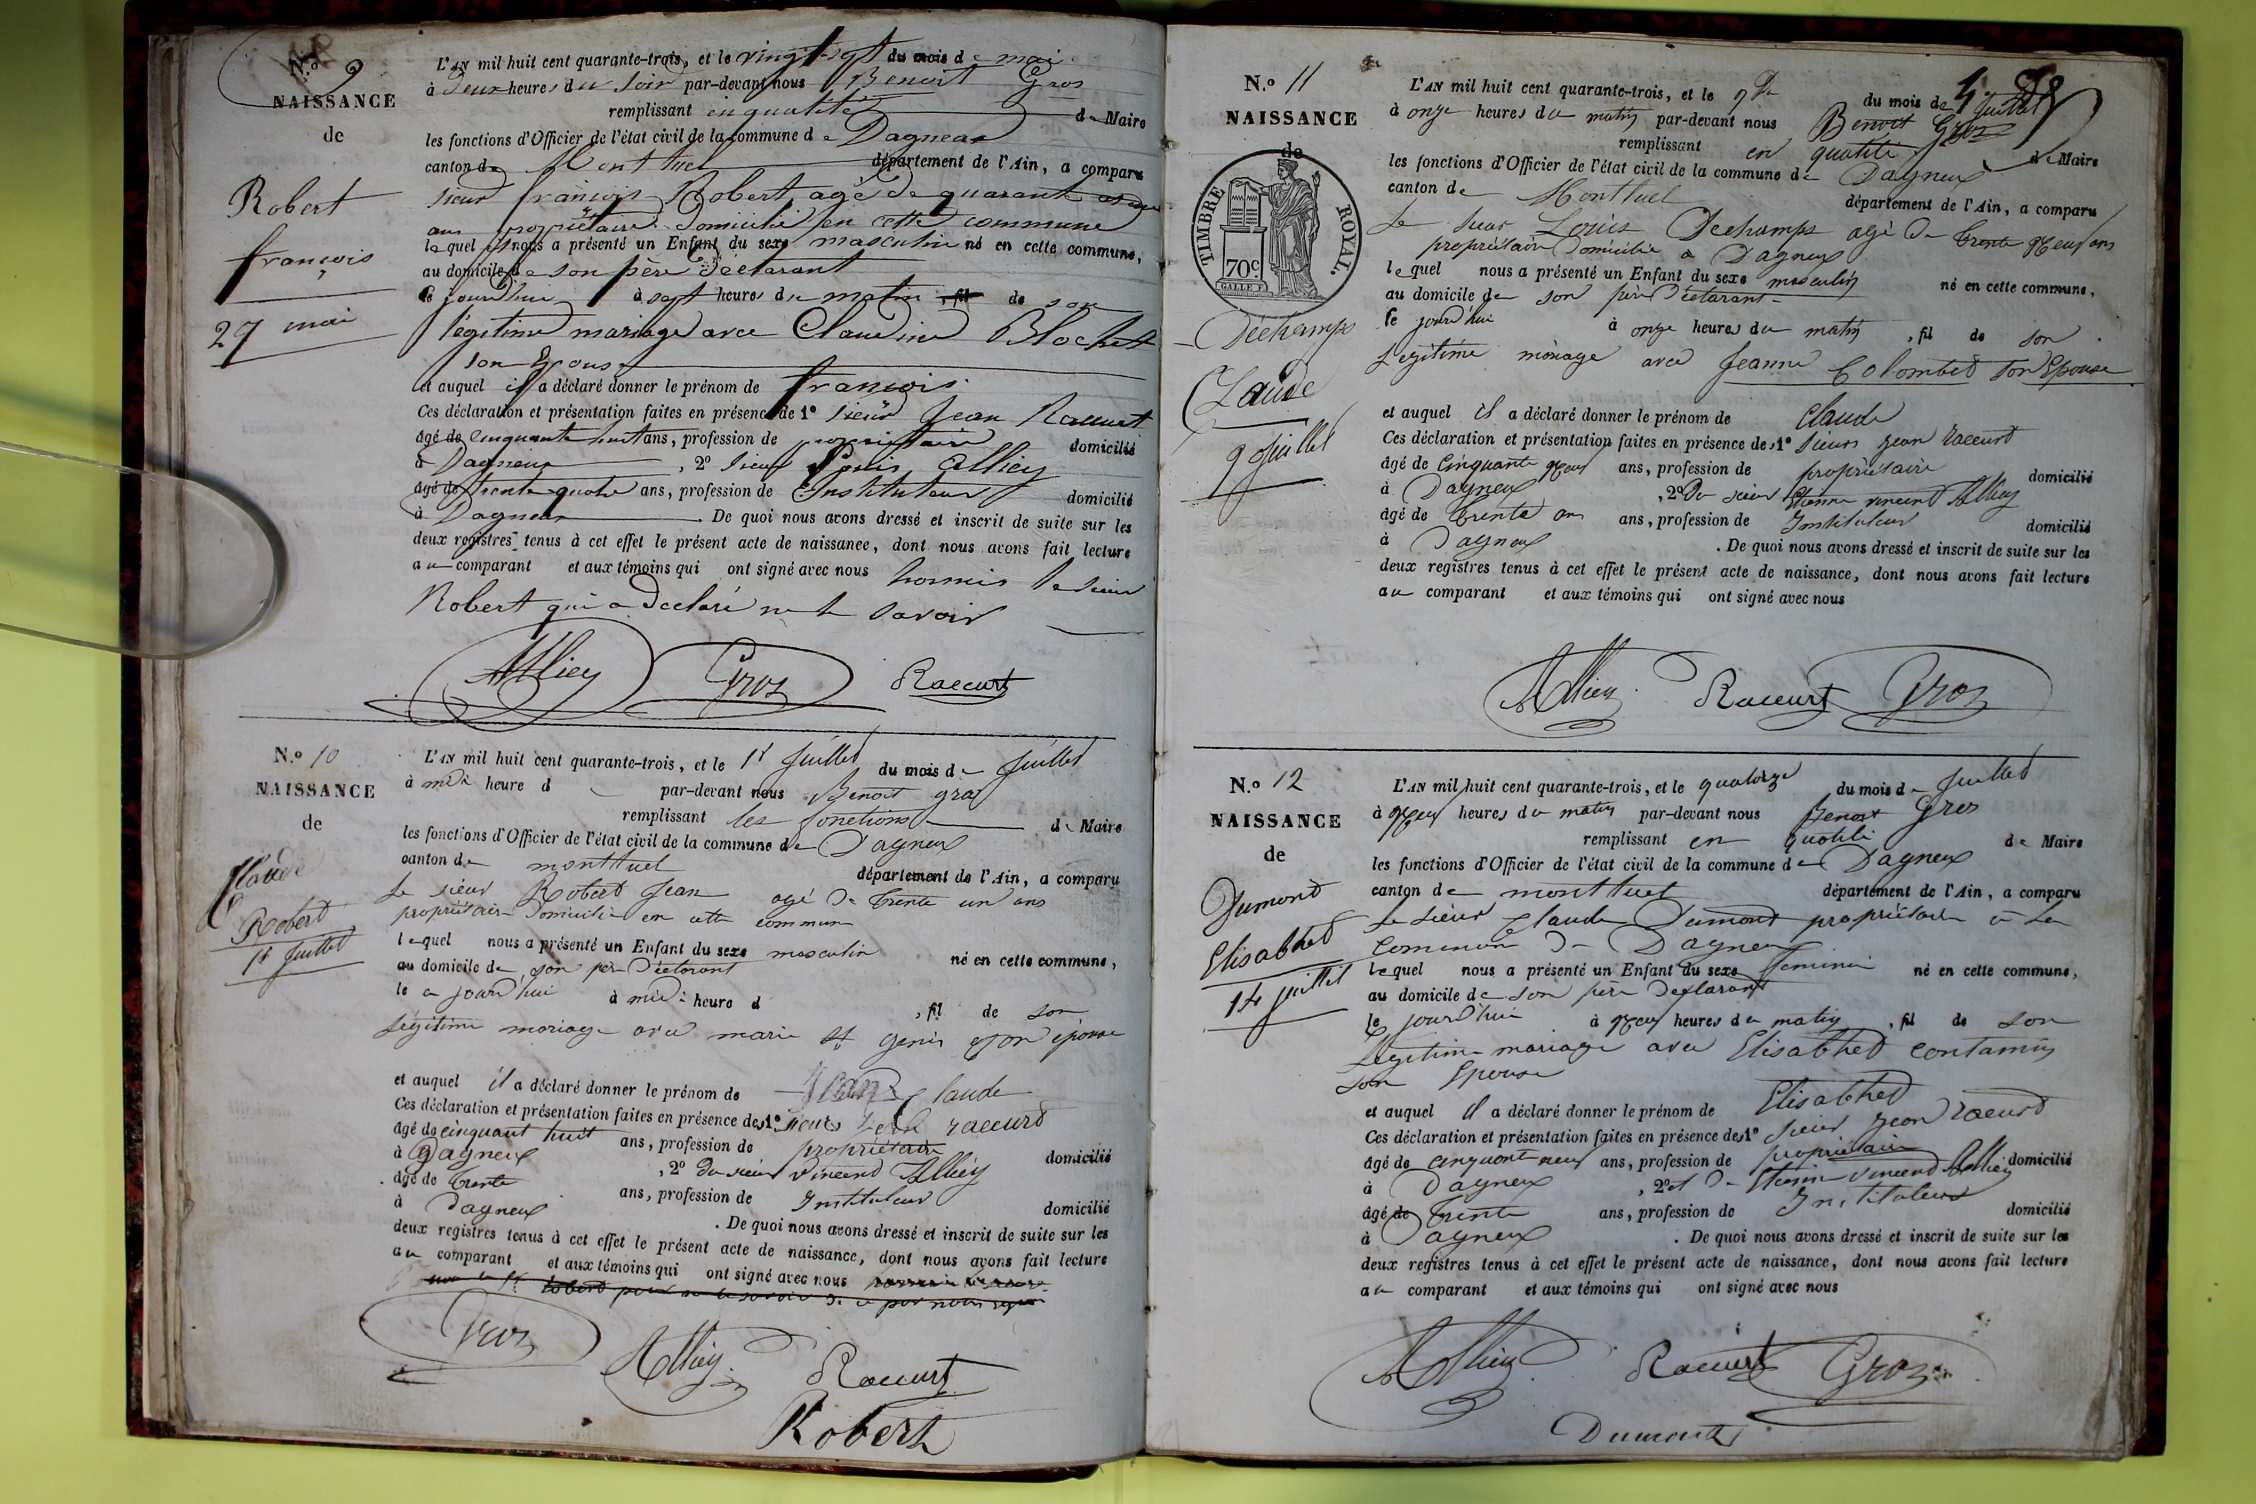 N.º 9
NAISSANCE
de
Robert
françois
27 mai
L'AN mil huit cent quarante-trois, et le vingt-sept du mois de mai
à deux heures du soir par-devant nous Benoit Gros
remplissant en qualité de Maire
les fonctions d'Officier de l'état civil de la commune de Dagneux
canton de Montluel département de l'Ain, a comparu
sieur françois Robert agé de quarante
ans propriétaire domicilié en cette commune
lequel nous a présenté un Enfant du sexe masculin né en cette commune,
au domicile de son père déclarant
le jourd'hui à sept heures du matin, fil de son
légitime mariage avec Claudine Blochet
son Epouse
et auquel il a déclaré donner le prénom de françois
Ces déclaration et présentation faites en présence de 1º sieur Jean Raccurt
âgé de cinquante huit ans, profession de propriétaire domicilié
à Dagneux, 2º sieur Alliey
âgé de trente quatre ans, profession de Instituteur domicilié
à Dagneux. De quoi nous avons dressé et inscrit de suite sur les
deux registres tenus à cet effet le présent acte de naissance, dont nous avons fait lecture
au comparant et aux témoins qui ont signé avec nous hormis le sieur
Robert qui a déclaré ne le savoir
Alliey Gros Raccurt
N.º 10
NAISSANCE
de
Claude
Robert
1r Juillet
L'AN mil huit cent quarante-trois, et le 1r Juillet du mois de Juillet
à midi heure d par-devant nous Benoit gros
remplissant les fonctions de Maire
les fonctions d'Officier de l'état civil de la commune de Dagneux
canton de montluel département de l'Ain, a comparu
Le sieur Robert Jean agé de trente un ans
propriétaire domicilié en cette commune
lequel nous a présenté un Enfant du sexe masculin né en cette commune,
au domicile de son père déclarant
le a jourd'hui à midi heure d, fil de son
Légitime mariage avec marie st genis son épouse
et auquel il a déclaré donner le prénom de Claude
Ces déclaration et présentation faites en présence des 1º sieurs raccurt
âgé de cinquant huit ans, profession de propriétaire domicilié
à Dagneux, 2º du sieur vincend Alliey
âgé de trente ans, profession de Instituteur domicilié
à Dagneux. De quoi nous avons dressé et inscrit de suite sur les
deux registres tenus à cet effet le présent acte de naissance, dont nous avons fait lecture
au comparant et aux témoins qui ont signé avec nous
Gros Alliey Raccurt
Robert
N.º 11
NAISSANCE
de
TIMBRE ROYAL.
70c
Déchamps
Claude
9 Juillet
L'AN mil huit cent quarante-trois, et le 9 du mois de Juillet
à onze heures du matin par-devant nous Benoit Gros
remplissant en qualité de Maire
les fonctions d'Officier de l'état civil de la commune de Dagneux
canton de Montluel département de l'Ain, a comparu
Le sieur Louis Dechamps agé de trente neuf ans
propriétaire domicilié a Dagneux
lequel nous a présenté un Enfant du sexe masculin né en cette commune,
au domicile de son père déclarant
le jourd'hui à onze heures du matin, fil de son
Légitime mariage avec Jeanne Colombet son Epouse
et auquel il a déclaré donner le prénom de Claude
Ces déclaration et présentation faites en présence de 1º sieurs jean raccurt
âgé de Cinquante neuf ans, profession de propriétaire domicilié
à Dagneux, 2º Du sieur Etienne vincent Alliey
âgé de trente ans ans, profession de Instituteur domicilié
à Dagneux. De quoi nous avons dressé et inscrit de suite sur les
deux registres tenus à cet effet le présent acte de naissance, dont nous avons fait lecture
au comparant et aux témoins qui ont signé avec nous
Alliey Raccurt Gros
N.º 12
NAISSANCE
de
Dumond
Elisabhet
14 juillet
L'AN mil huit cent quarante-trois, et le quatorze du mois de Juillet
à neuf heures du matin par-devant nous Benoit Gros
remplissant en qualité de Maire
les fonctions d'Officier de l'état civil de la commune de Dagneux
canton de montluel département de l'Ain, a comparu
Le sieur Claude Dumond propriétaire a la
Commune de Dagneux
lequel nous a présenté un Enfant du sexe feminin né en cette commune,
au domicile de son père déclarant
le jourd'hui à neuf heures du matin, fil de son
Légitime mariage avec Elisabhet Contamin
son Epouse
et auquel il a déclaré donner le prénom de Elisabhet
Ces déclaration et présentation faites en présence des 1º sieur jean raccurd
âgé de cinquant neuf ans, profession de propriétaire domicilié
à Dagneux, 2º et de Etienne vincend Alliey
âgé de trente ans, profession de Instituteur domicilié
à Dagneux. De quoi nous avons dressé et inscrit de suite sur les
deux registres tenus à cet effet le présent acte de naissance, dont nous avons fait lecture
au comparant et aux témoins qui ont signé avec nous
Alliey Raccurt Gros
Dumont